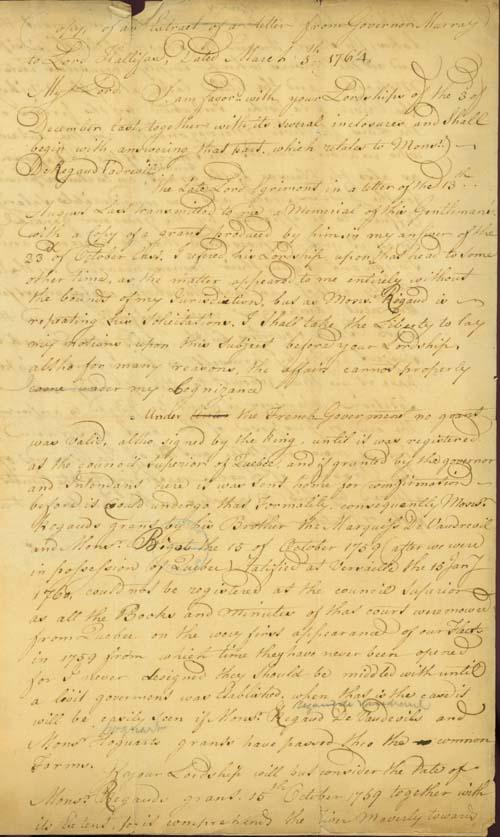 Copy of an Extract of a Letter from Governor Murray
to Lord Hallifax, Dated March 5th 1764
My Lord I am favord with your Lordships of the 3 of
December last, together with its several inclosures and Shall
begin with answering that part, which relates to Monsr
De Regaud
The Late Lord Egrimont in a letter of the 13th
August Last transmitted to me a Memorial of this Gentlemans
with a Copy of a grant produced by him, in my answer of the
23d of October last, I refered his Lordship upon that head to some
other time, as the matter appeared to me entirely without
the bounds of my Jurisdiction, but as Monsr Regaud is
repeating his Solicitations, I Shall take the Liberty to lay
my notions upon this Subject before your Lordship,
altho for many reasons, the affair cannot properly
come under my Cognizance
Under the French Goverment no grant
was Valid, altho signed by the King, until it was registered
at the council superior of Quebec, and if granted by the governor
and Intendant here it was Sent home for confirmation
before it Could undergo that Formality, consequently Monsr
Regauds grant by his Brother the Marquiss De Vaudrevil
and Monsr Bigot the 15 of October 1759 after we were
in possession of Quebec Ratified at Versaille the 15 Jany
1760, could not be registered at the council Superior
as all the Books and Minutes of that court were moved
from Quebec on the very first appearance of our Fleet
in 1759 from which time they have never been opened
for I never designed they should be middled with until
a livil goverment was Established, when that is the case it
Rigaud de Vaudreuil
will be easily seen if Monsr Regaud De Vaudevils and
Hocquart
Monsr Hoquarts grants have passed thro the common
Forms.
If your Lordship will but consider the date of
Monsr Regauds grant 15th October 1759 together with
its Extent, for it comprehends the